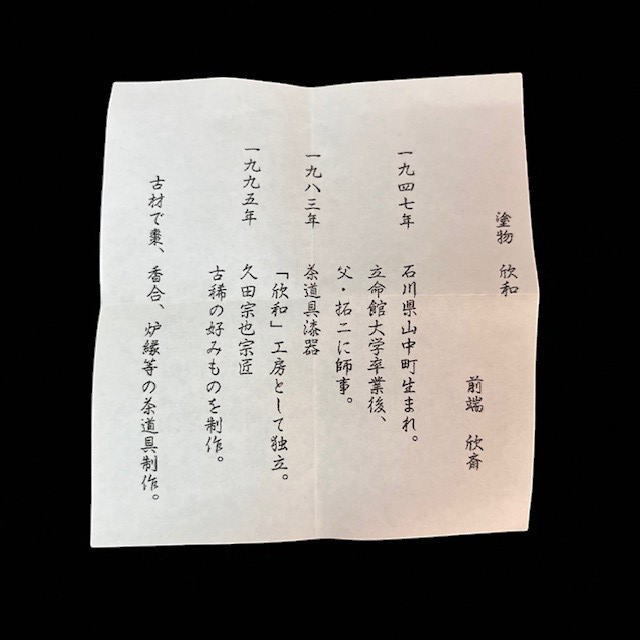 塗物 欣和
前端 欣斎
一九四七年 石川県山中町生まれ。
立命館大学卒業後、
父・拓二に師事。
一九八三年 茶道具漆器
「欣和」工房として独立。
一九九五年 久田宗也宗匠
古稀の好みものを制作。
古材で棗、香合、炉縁等の茶道具制作。